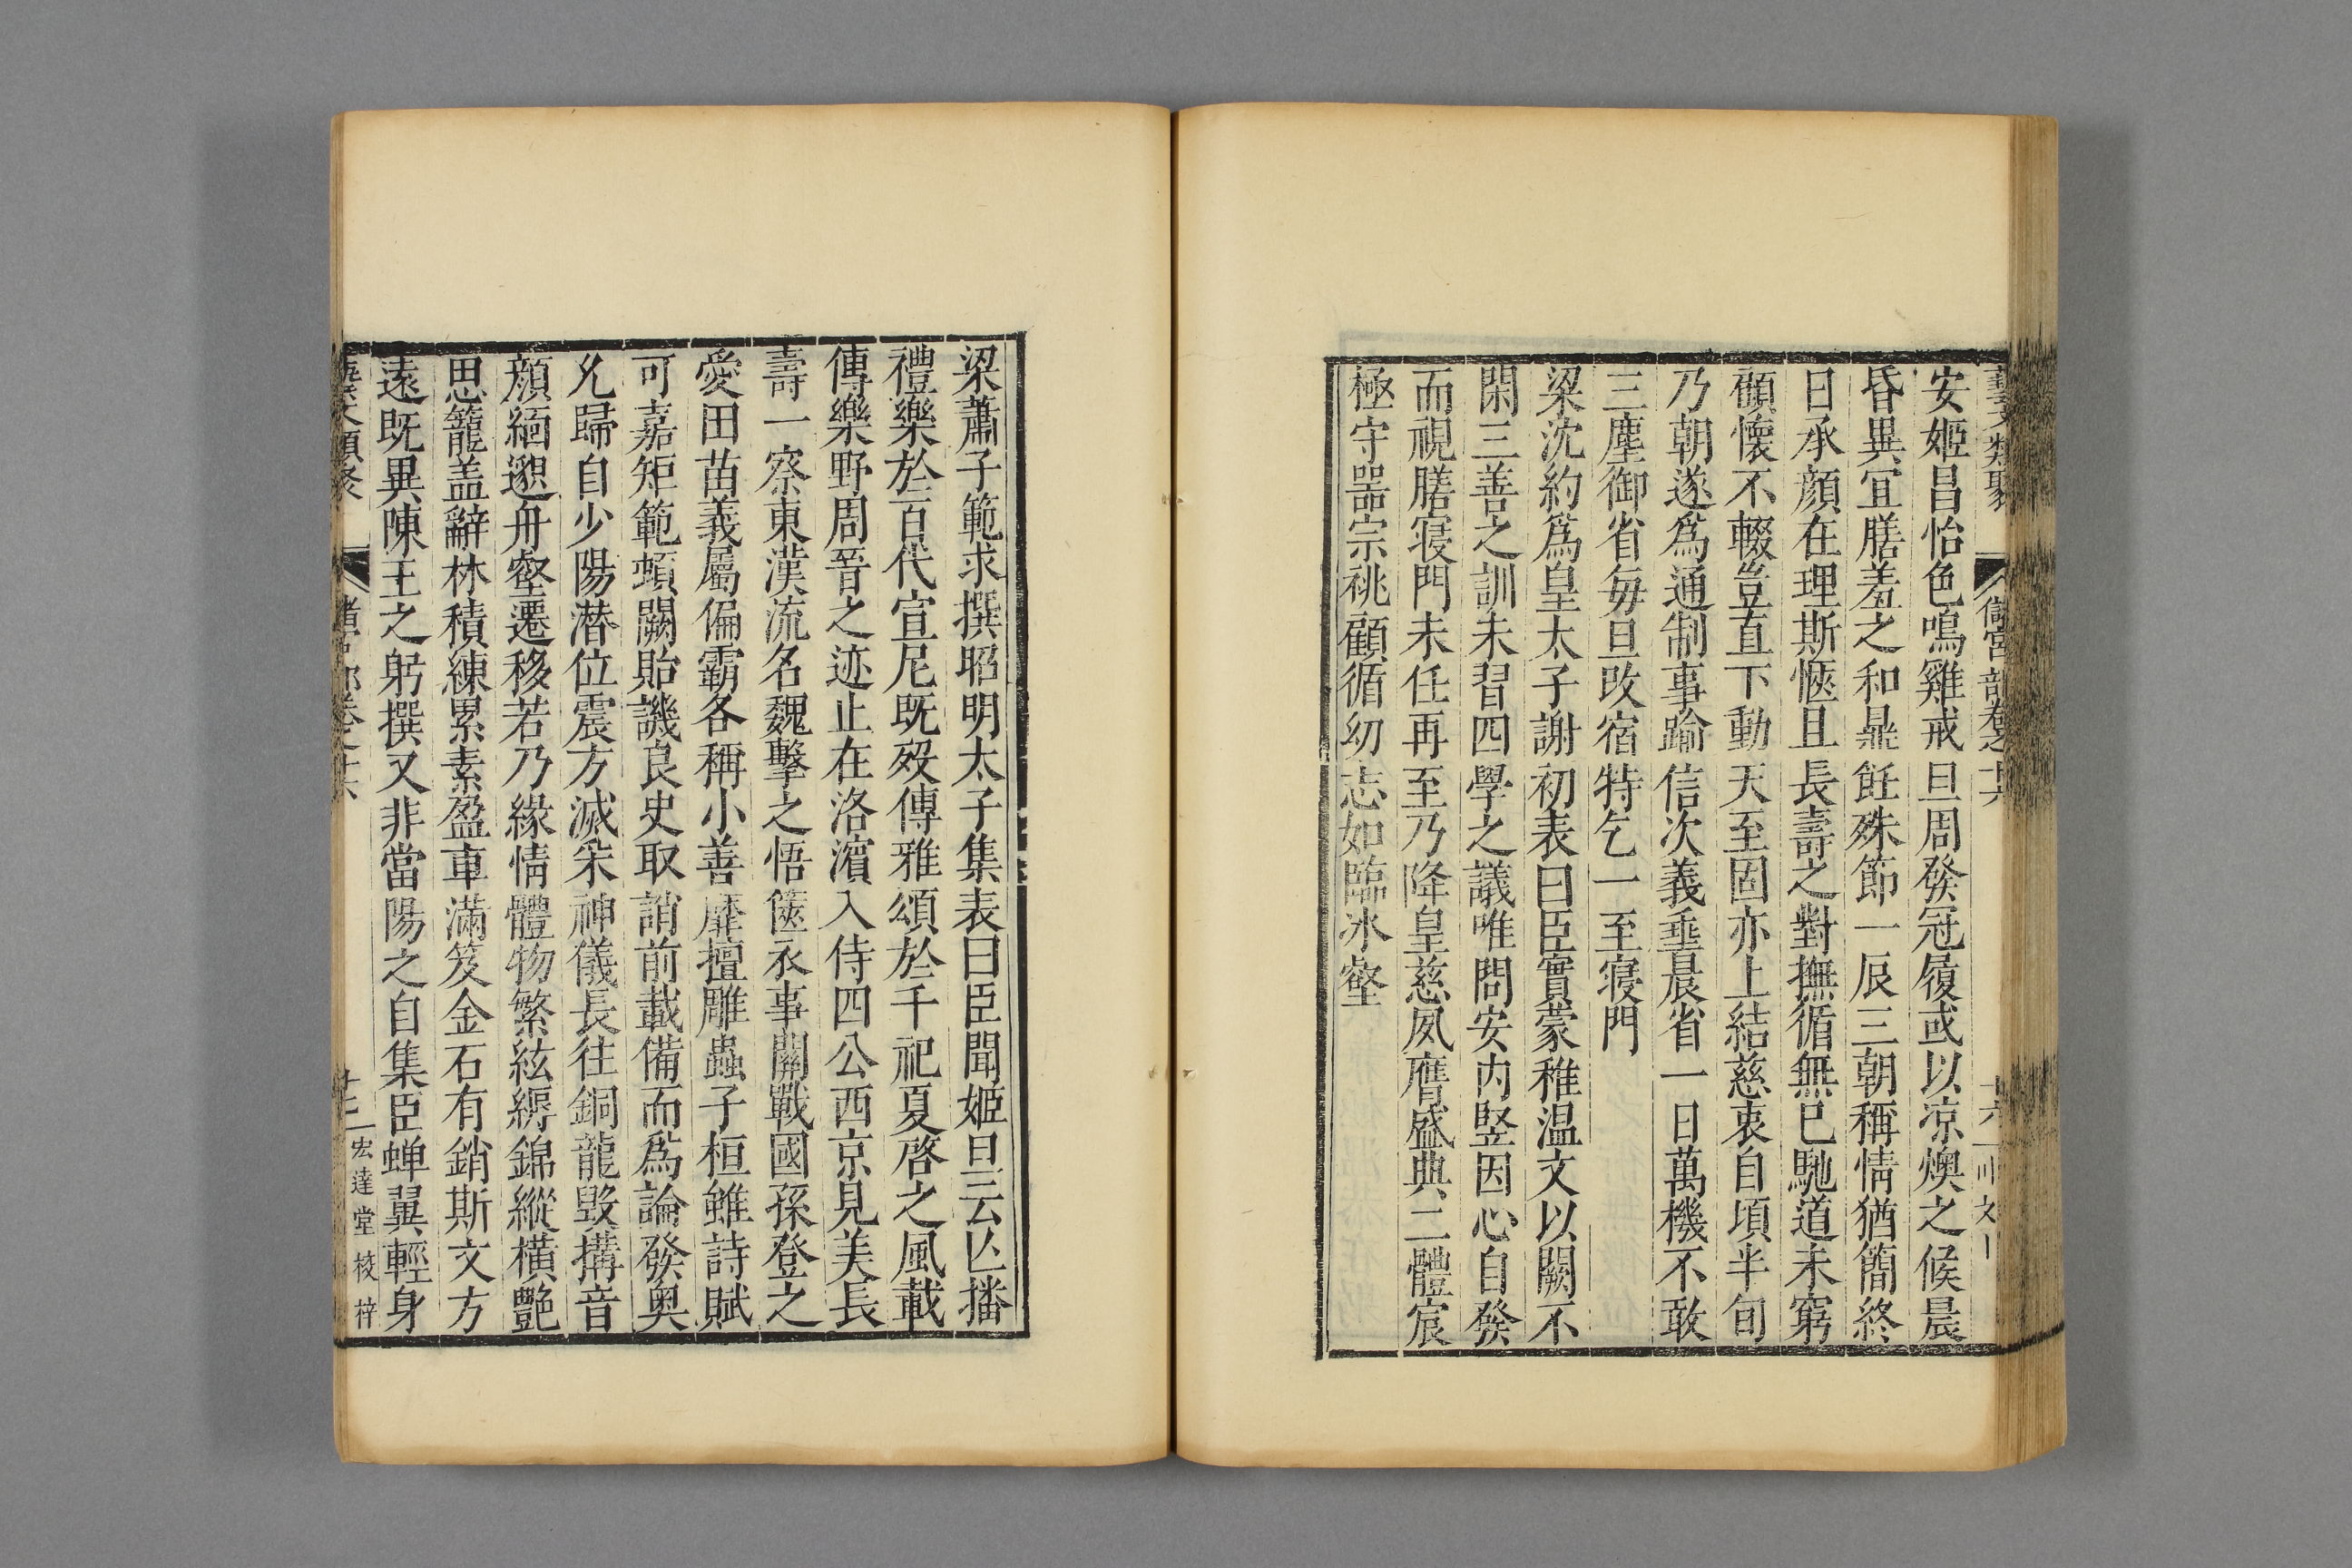 安姬昌怡色鳴雞戒旦周發冠履或以凉燠之候晨
昏異宜膳羞之和鼎飪殊節一辰三朝稱情猶簡終
日承顔在理斯愜且長壽之對撫循無已馳道未窮
顧懷不輟豈直下動天至固亦上結慈衷自頃半旬
乃朝遂爲通制事踰信次義垂晨省一日萬機不敢
三塵御省每旦改宿特乞一至寝門
梁沈約爲皇太子謝初表曰臣實蒙稚温文以闕不
閑三善之訓未習四學之議唯問安内竪因心自發
而視膳寝門未任再至乃降皇慈夙膺盛典二體宸
極守器宗祧顧循幼志如臨氷壑
梁蕭子範求撰昭明太子集表曰臣聞姬旦云亾播
禮樂於百代宣尼既歿傳雅頌於千祀夏啓之風載
傳樂野周晉之迹止在洛濵入侍四公西京見美長
壽一察東漢流名魏擊之悟篋衣事關戰國孫登之
愛田苗義屬偏霸各稱小善靡擅雕蟲子桓雖詩賦
可嘉矩範頓闕貽譏良史取誚前載備而爲論發奥
允歸自少陽潜位震方滅彩神儀長往銅龍毁搆音
顔緬邈舟壑遷移若乃緣情體物繁絃縟錦縱横艷
思籠盖辭林積練累素盈車滿笈金石有銷斯文方
遠既異陳王之躬撰又非當陽之自集臣蝉翼輕身
宏達堂校梓